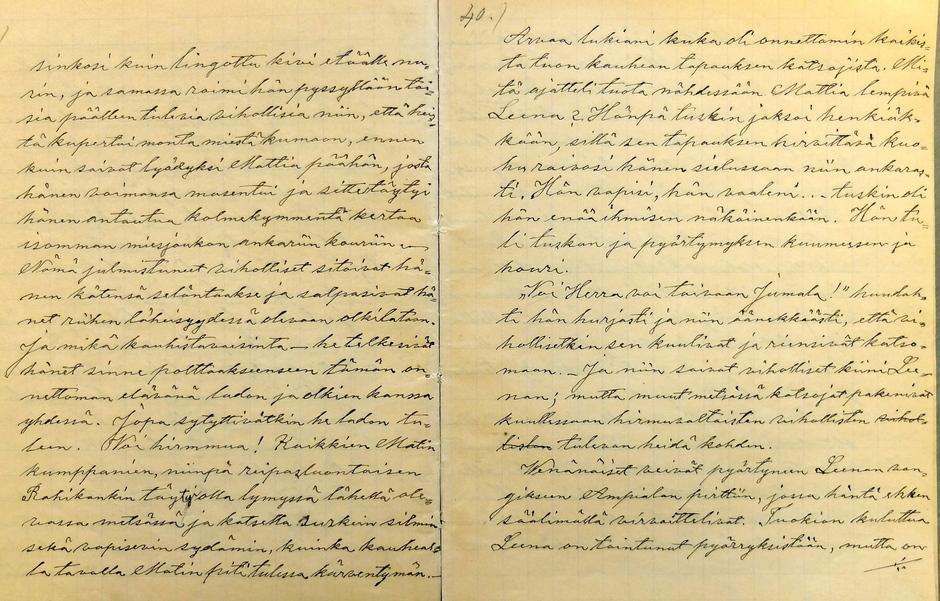 sinkosi kuin lingottu kivi etäälle nu-
rin, ja samassa roimi hän pyssyllään toi-
sia päälleen tulevia vihollisia niin, että hei-
tä kupertui monta miestä kumoon, ennen
kuin saivat lyödyksi Mattia päähän, josta
hänen voimansa masentui ja sitte täytyi
hänen antautua kolmekymmentä kertaa
isomman miesjoukon ankariin kouriin. —
Nämä julmistuneet viholliset sitoivat hä-
nen kätensä seläntaakse ja salpasivat hä-
net riihen läheisyydessä olevaan olkilatoon.
Ja mikä kauhistavaisinta — he telkesivät
hänet sinne polttaakseenseen tämän on
nettoman elävänä ladon ja olkien kanssa
yhdessä. Jopa sytyttivätkin he ladon tu-
leen. Voi hirmua! Kaikkien Matin
kumppanien, niinpä reipasluontoisen
Rahikankin täytyi olla lymyssä lähellä ole-
vassa metsässä ja katsella surkein silmin
sekä vapisevin sydämin, kuinka kauheal-
la tavalla Matin piti tulessa kärventymän. —
40.)
Arvaa lukiani kuka oli onnettomin kaikis-
ta tuon kauhean tapauksen katsojista. Mi-
tä ajatteli tuota nähdessään Mattia lempivä
Leena? Hänpä tuskin jaksoi henkiäk-
kään, sillä sen tapauksen hirvittävä kuo-
hu raivosi hänen sielussaan niin ankaras-
ti. Hän vapisi, hän vaaleni... tuskin oli
hän enää ihmisen näköinenkään. Hän tu-
li tuskan ja pyörtymyksen kuumeesen ja
houri.
"Voi Herra voi taivaan Jumala!" huudah-
ti hän hurjasti ja niin äänekkäästi, että vi-
hollisetkin sen kuulivat ja riensivät katso-
maan. — Ja niin saivat viholliset kiini Lee-
nan; mutta muut metsässä katsojat pakenivat
kuullessaan hirmuvaltaisten vihollisten
tulevan heidä kohden.
Venänäiset veivät pyörtyneen Leenan van-
gikseen Ampialan perttiin, jossa häntä ehken
säälimättä virvoittelivat. Tuokion kuluttua
Leena on tointunut pyörryksistään, mutta on